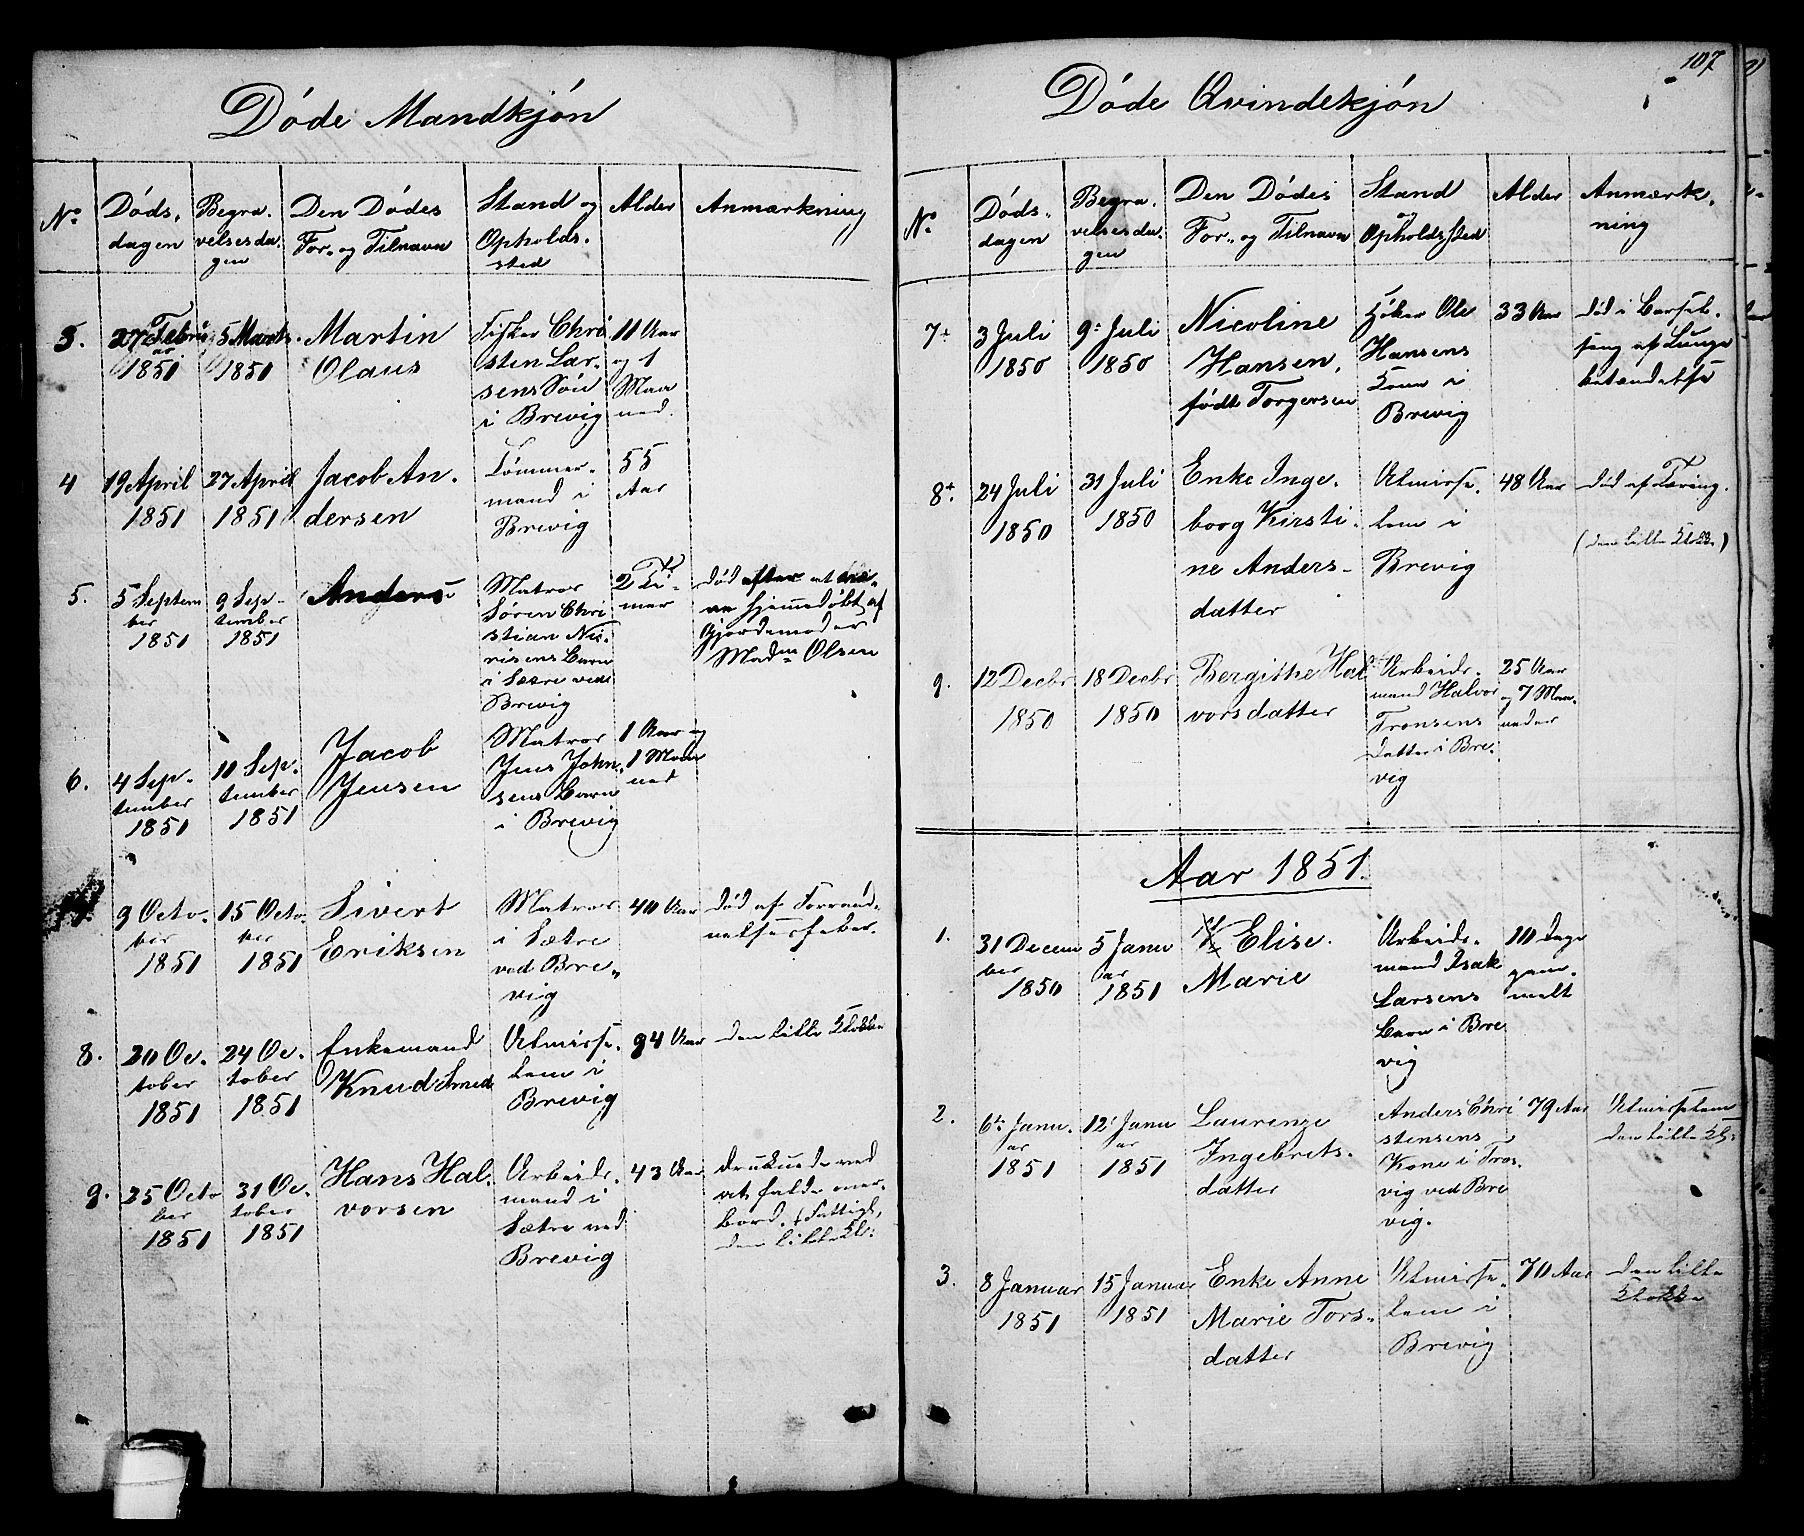 107
Døde Mandkjøn
No
Døds-
dagen
Begra-
velsesda-
gen
Den Dødes
For- og Tilnavn
Stand og
Opholds-
sted
Alder
Anmærkning
3.
27 Febru
ar
1851
5 Marts
1851
Martin
Olaus
Fisker Chri
sten Lar-
sens Søn
i Brevig
11 Aar
og 1
Maa
ned.
4
19 April
1851
27 April
1851
Jacob An-
dersen
Tømmer-
mand i
Brevig
55
Aar
5.
5 Septem
ber
1851
9 Sep-
tember
1851
Anders
Matros
Søren Chri
stian
Barn
i Sætre ved
Brevig
2 Ti-
mer
død efter at væ-
re hjemmedøbt af
Gjordemoder
Madm Olsen
6.
4 Sep-
tember
1851
10 Sep-
tember
1851
Jacob
Jensen
Matros
Jens John-
sens Barn
i Brevig
1 Aar og
1 Maa
ned
9 Octo-
ber
1851
15 Octo
ber
1851
Sivert
Eriksen
Matros
i Sætre
ved Bre-
vig
40 Aar
død af Forraad-
nelsesfeber.
8.
20 Oc-
tober
1851
24 Oc-
tober
1851
Enkemand
Knud Smed
Almisse-
lem i
Brevig
94 Aar
den lille Klokke
9.
25 Octo
ber
1851
31 Oc-
tober
1851
Hans Hal-
vorsen
Arbeids-
mand i
Sætre ved
Brevig
43 Aar
druknede ved
at falde over-
bord. (Fattig,
den lille Kl:
Døde Qvindekjøn
No
Døds-
dagen
Begra-
velsesda-
gen
Den Dødes
For- og Tilnavn
Stand
og
Opholdssted
Alder
Anmærk-
ning
7+
3 Juli
1850
9: Juli
1850
Nicoline
Hansen,
født Torgersen
Høker Ole
Hansens
Kone i
Brevig
33 Aar
død i Barsel-
seng af Lunge
betændelse
8+.
24 Juli
1850
31 Juli
1850
Enke Inge-
borg Kirsti-
ne Anders-
datter
Almisse-
lem i
Brevig
48 Aar
død af Tæring.
(den lille Klokke)
9.
12 Decbr
1850
18 Decbr
1850
Bergithe Hal
vorsdatter
Arbeids-
mand Halvor
Tronsens
Datter i Bre-
vig
25 Aar
og 7 Maa-
neder
Aar 1851.
1.
31 Decem
ber
1850
5 Janu
ar
1851
Elise
Marie
Arbeids-
mand Isak
Larsens
Barn i Bre
vig
10 Dage
gam-
melt
2.
6te Janu-
ar
1851
12 Janu
ar
1851
Laurenze
Ingebrets-
datter
Anders Chri
stensens
Kone i Tros-
vig ved Bre
vig.
79 Aar
Almisselem
den lille Kl:
3.
8 Januar
1851
15 Januar
1851
Enke Anne
Marie Tors-
datter
Almisse-
lem i
Brevig
70 Aar
den lille
Klokke